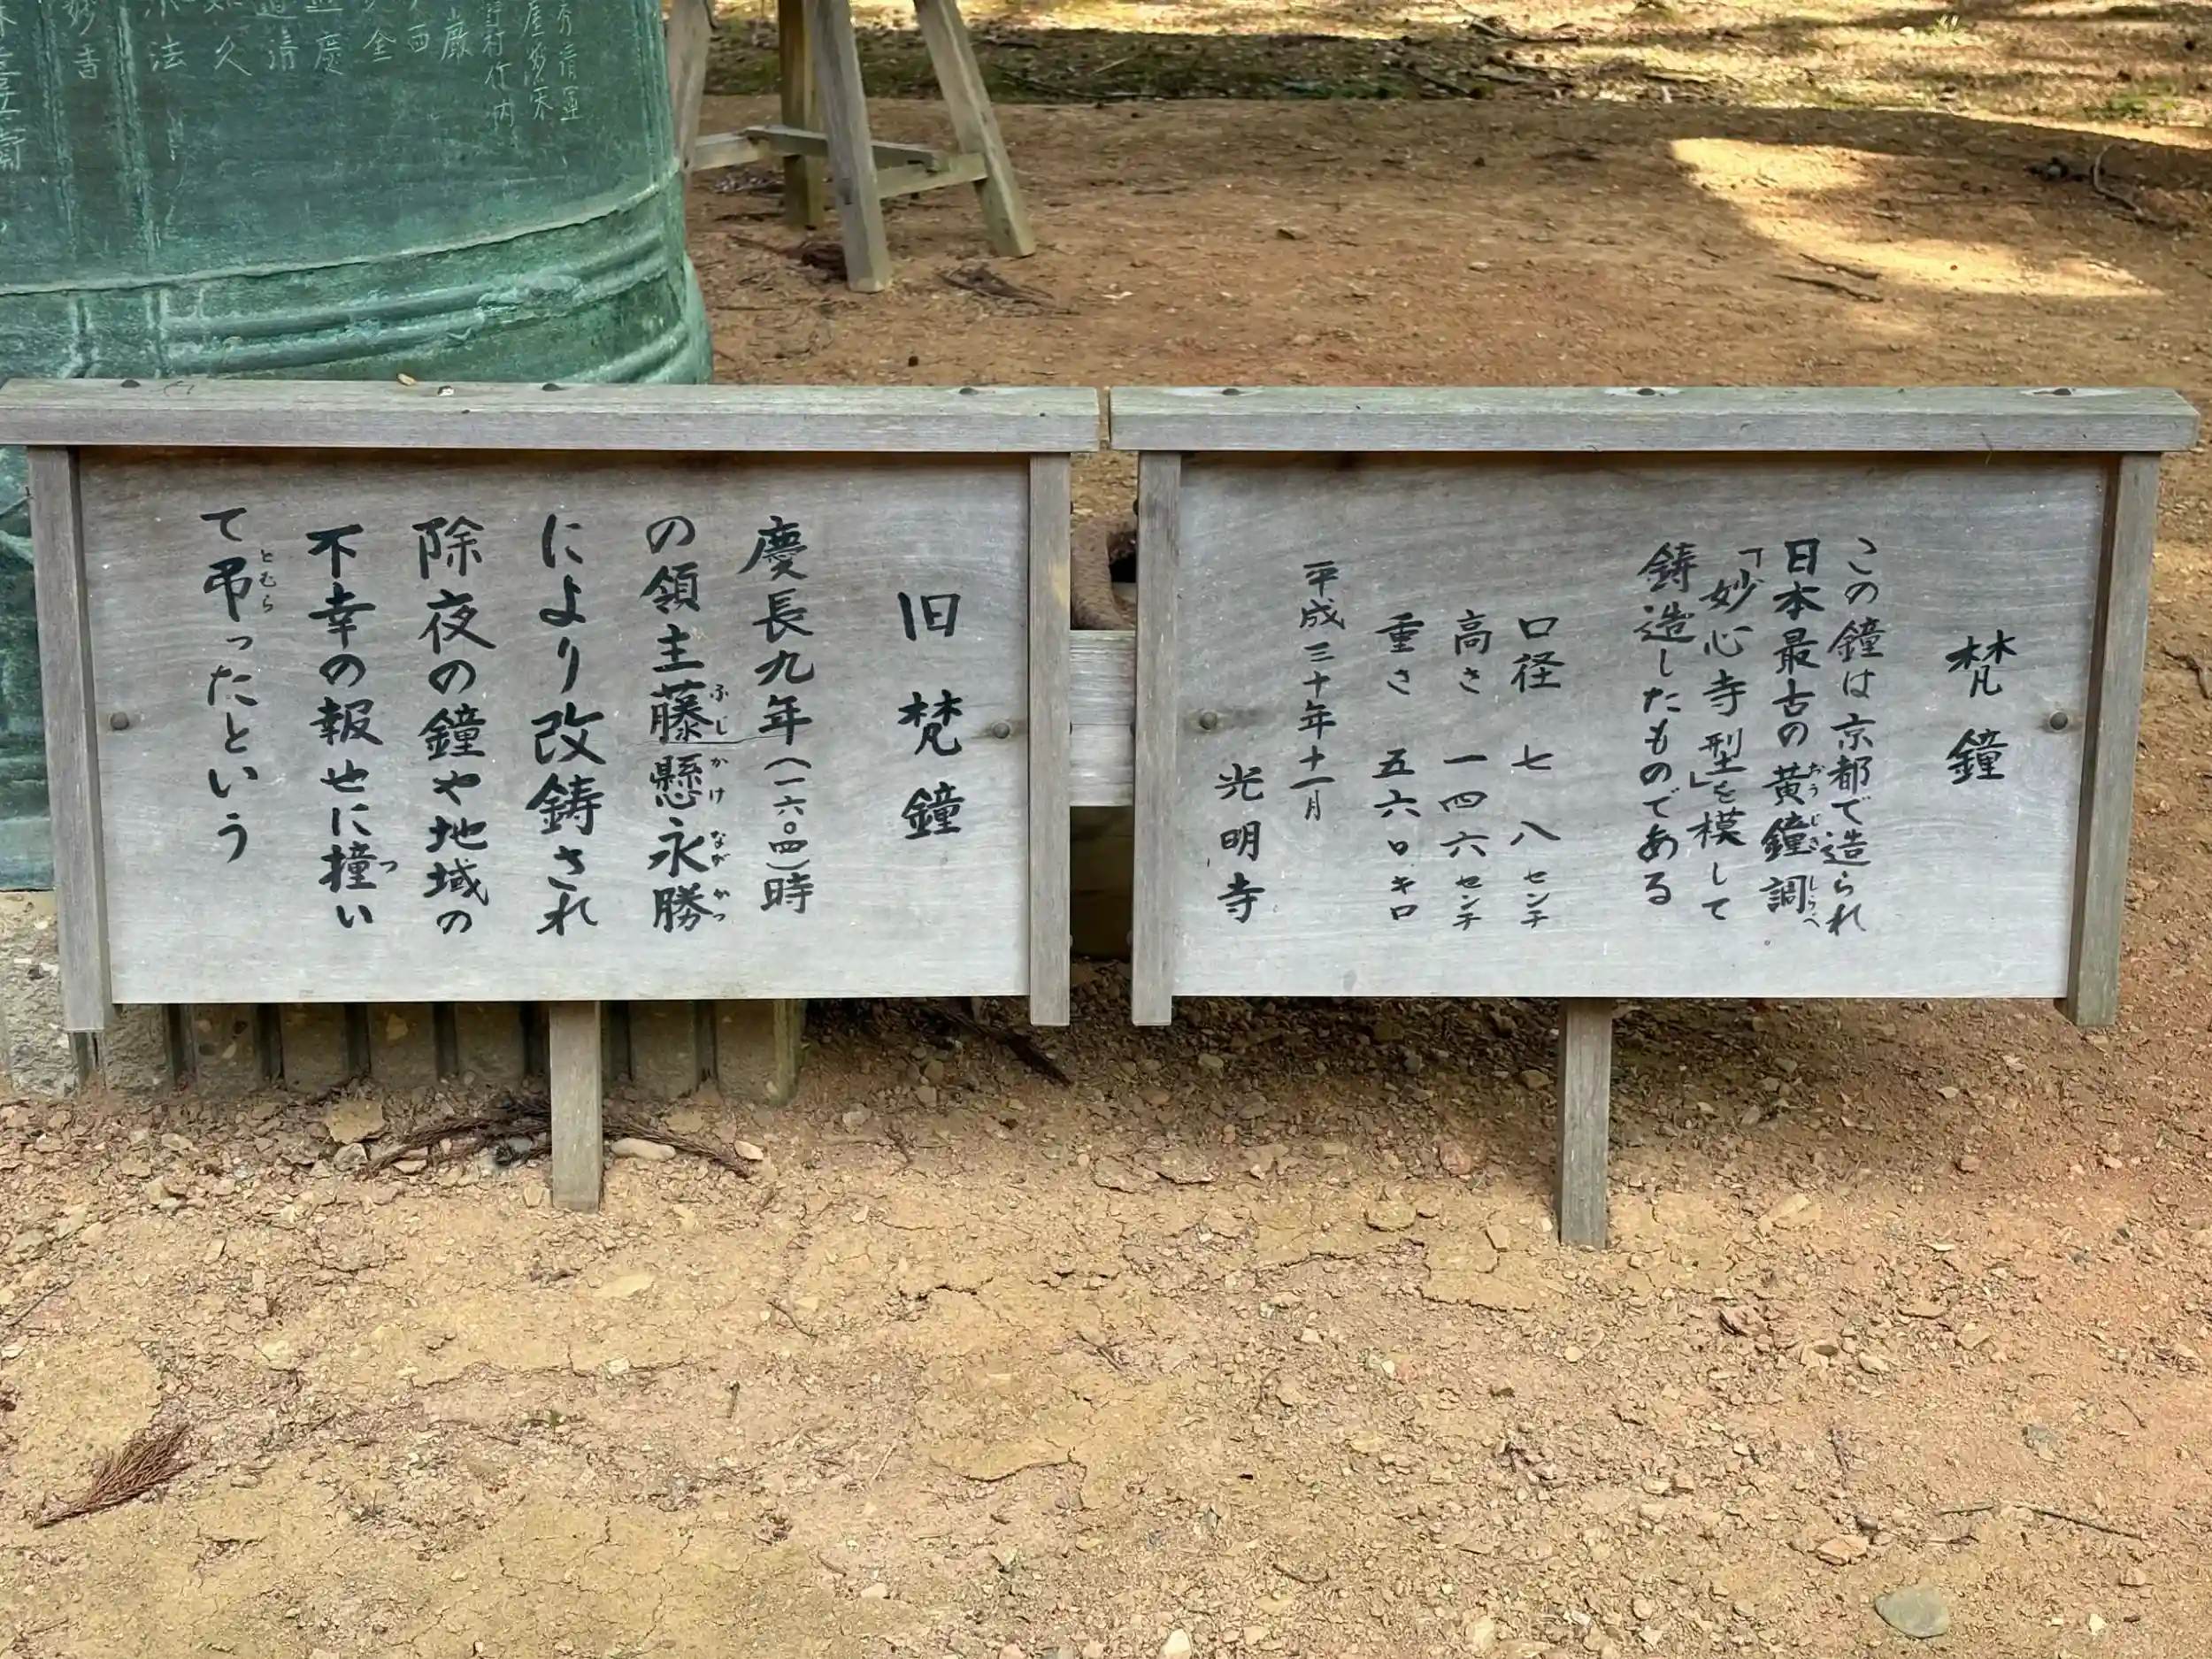 梵鐘
この鐘は京都で造られ
日本最古の黄鐘調
「妙心寺型」を模して
鋳造したものである
口径 七八センチ
高さ 一四六センチ
重さ 五六〇キロ
平成三十年十一月
光明寺
おうじきしらべ
旧梵鐘
慶長九年(一六〇四)時
の領主藤懸永勝
ふじかけながかつ
により改鋳され
除夜の鐘や地域の
不幸の報せに撞い
つ
て弔ったという
とむら